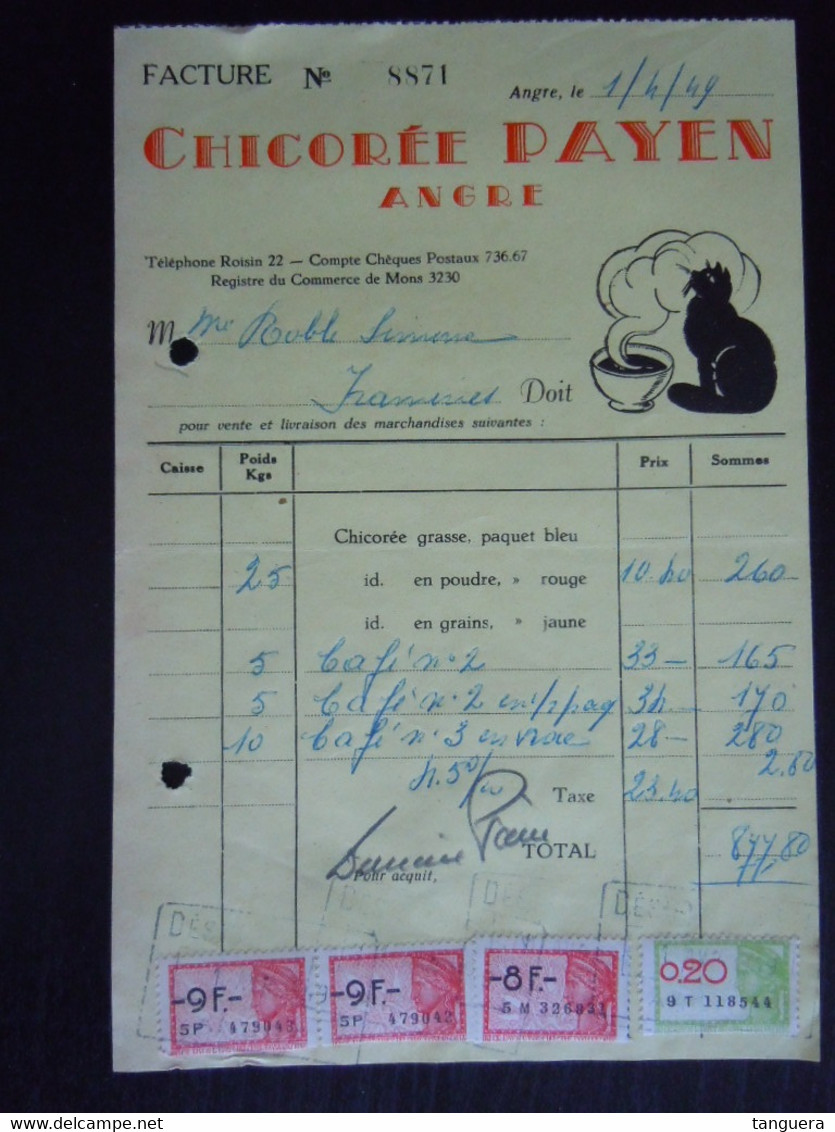 FACTURE Nº 8871
Angre, le 1/4/49
CHICORÉE PAYEN
ANGRE
Téléphone Roisin 22 — Compte Chèques Postaux 736.67
Registre du Commerce de Mons 3230
M Me Roble Simone
Doit
pour vente et livraison des marchandises suivantes :
Caisse Poids Kgs Prix Sommes
Chicorée grasse, paquet bleu
25 id. en poudre, » rouge 10.40 260
id. en grains, » jaune
5 Café nº 2 33— 165
5 Café nº 2 34— 170
10 Café nº 3 en vrac 28— 280
2.80
4.50
Taxe
TOTAL 877,80
Pour acquit,
-9F.- 5P 479043
-9F.- 5P 479042
-8F.- 5 M 326931
0.20 9 T 118544
tanguera